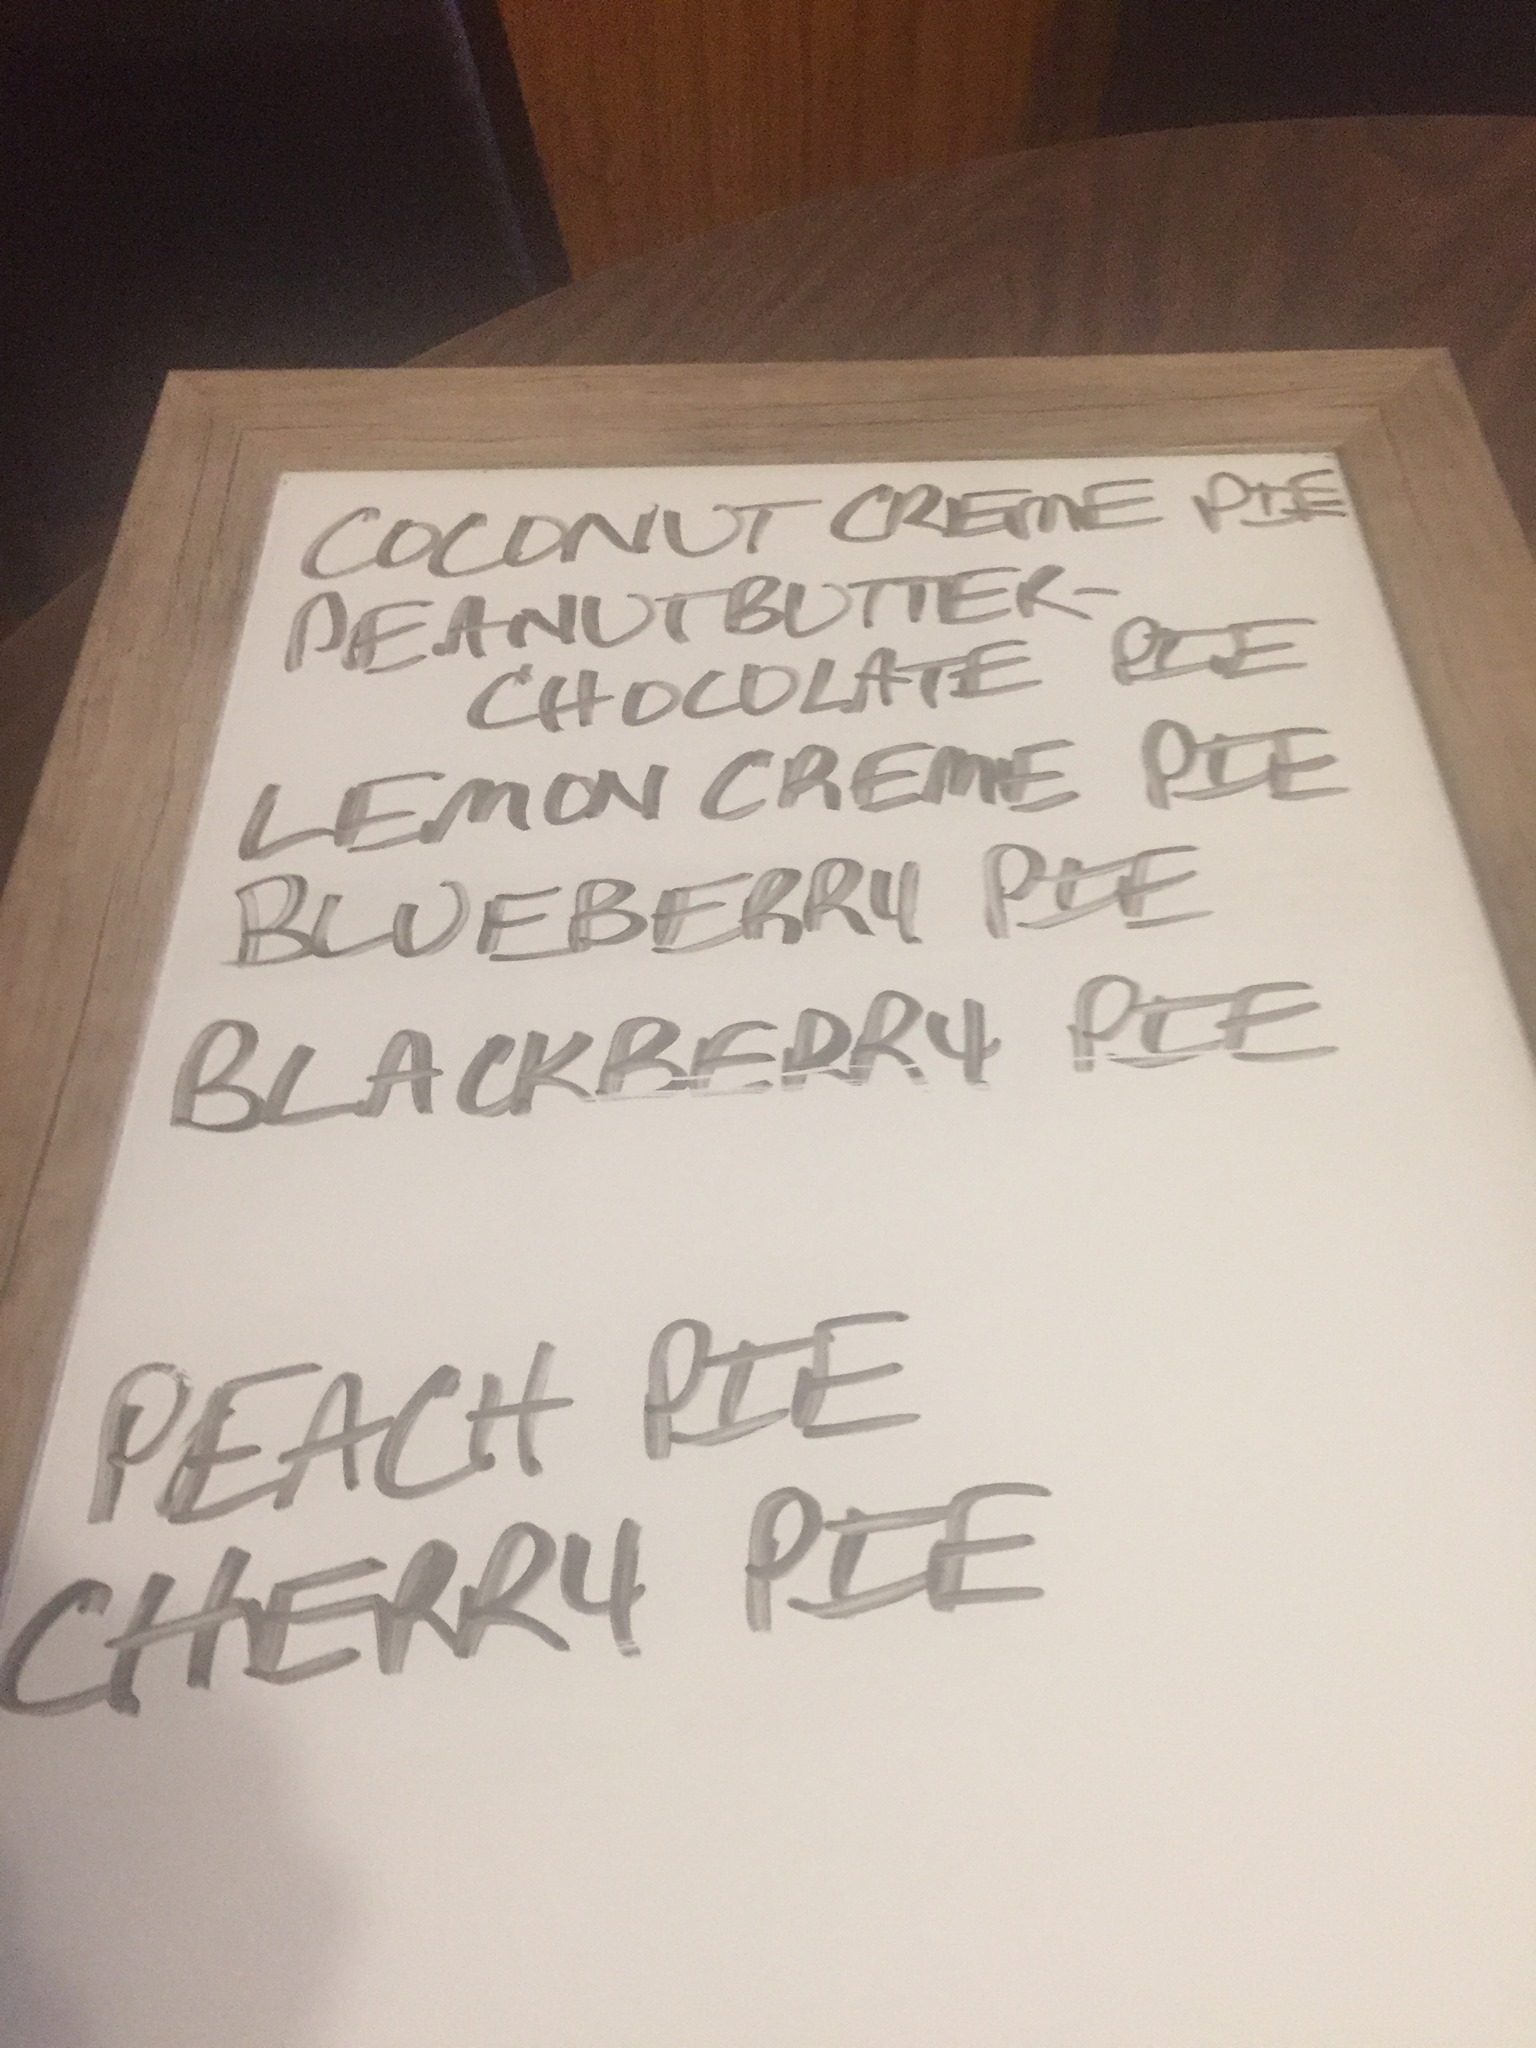 COCONUT CREME PIE
PEANUTBUTTER-
CHOCOLATE PIE
LEMON CREME PIE
BLUEBERRY PIE
BLACKBERRY PIE
PEACH PIE
CHERRY PIE